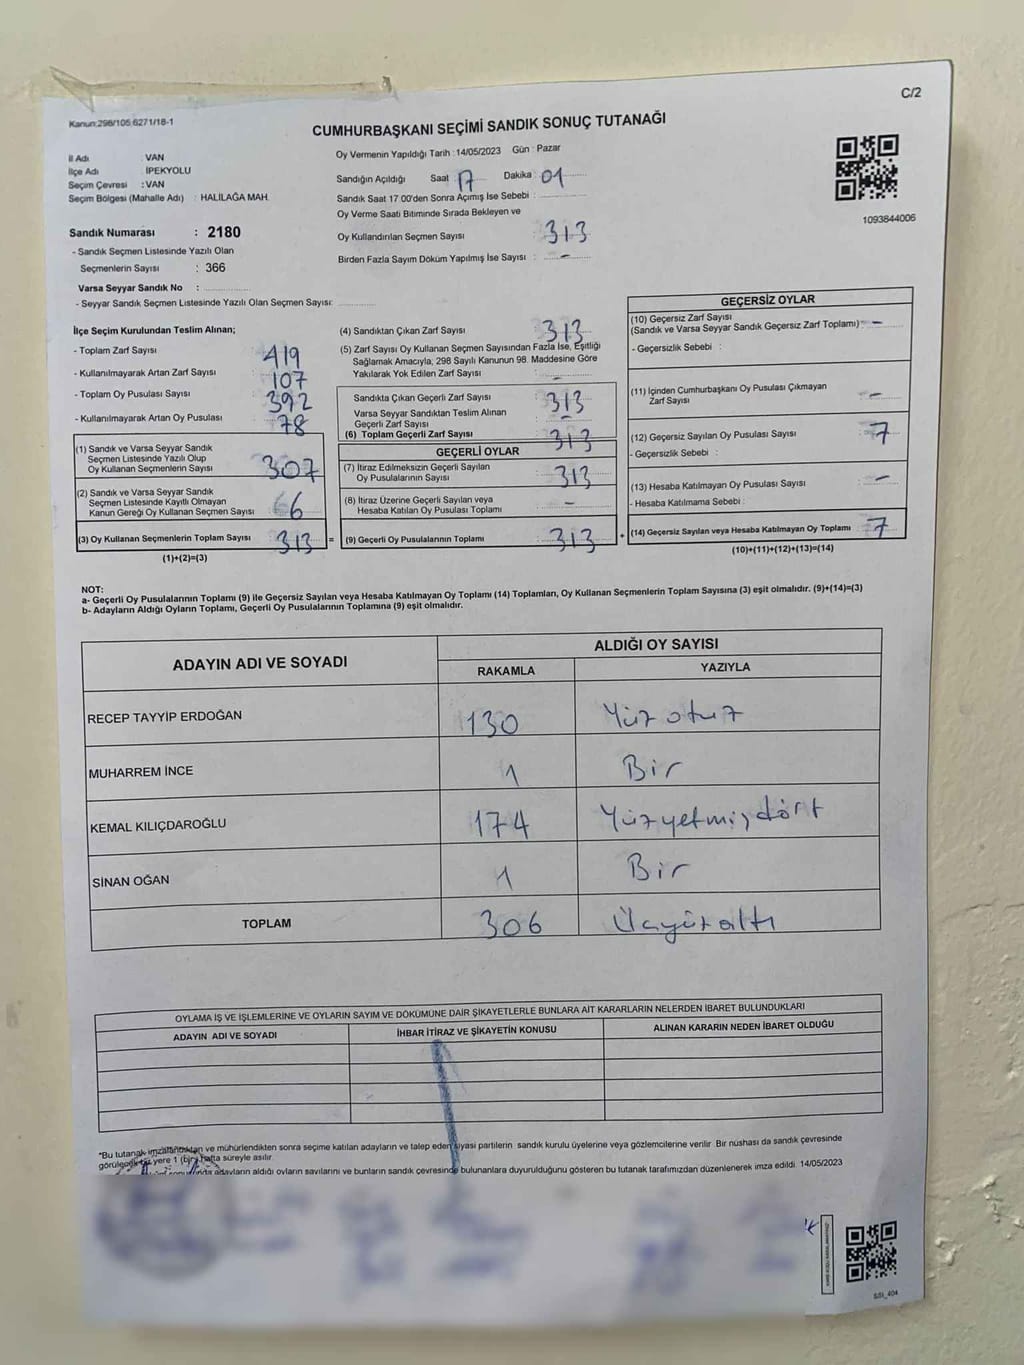 C/2
Kanun:298/105 6271/18-1
CUMHURBAŞKANI SEÇİMİ SANDIK SONUÇ TUTANAĞI
İl Adı : VAN
İlçe Adı : İPEKYOLU
Seçim Çevresi : VAN
Seçim Bölgesi (Mahalle Adı) : HALİLAĞA MAH.
Sandık Numarası : 2180
- Sandık Seçmen Listesinde Yazılı Olan
Seçmenlerin Sayısı : 366
Varsa Seyyar Sandık No :
- Seyyar Sandık Seçmen Listesinde Yazılı Olan Seçmen Sayısı:
Oy Vermenin Yapıldığı Tarih : 14/05/2023 Gün : Pazar
Sandığın Açıldığı Saat 17 Dakika 01
Sandık Saat 17.00'den Sonra Açımış İse Sebebi :
Oy Verme Saati Bitiminde Sırada Bekleyen ve
Oy Kullandırılan Seçmen Sayısı : 313
Birden Fazla Sayım Döküm Yapılmış İse Sayısı : -
1093844006
İlçe Seçim Kurulundan Teslim Alınan;
- Toplam Zarf Sayısı : 419
- Kullanılmayarak Artan Zarf Sayısı : 107
- Toplam Oy Pusulası Sayısı : 392
- Kullanılmayarak Artan Oy Pusulası : 78
(1) Sandık ve Varsa Seyyar Sandık
Seçmen Listesinde Yazılı Olup
Oy Kullanan Seçmenlerin Sayısı : 307
(2) Sandık ve Varsa Seyyar Sandık
Seçmen Listesinde Kayıtlı Olmayan
Kanun Gereği Oy Kullanan Seçmen Sayısı : 6
(3) Oy Kullanan Seçmenlerin Toplam Sayısı : 313 =
(1)+(2)=(3)
(4) Sandıktan Çıkan Zarf Sayısı : 313
(5) Zarf Sayısı Oy Kullanan Seçmen Sayısından Fazla İse, Eşitliği
Sağlamak Amacıyla; 298 Sayılı Kanunun 98. Maddesine Göre
Yakılarak Yok Edilen Zarf Sayısı : -
Sandıkta Çıkan Geçerli Zarf Sayısı : 313
Varsa Seyyar Sandıktan Teslim Alınan
Geçerli Zarf Sayısı : -
(6) Toplam Geçerli Zarf Sayısı : 313
GEÇERLİ OYLAR
(7) İtiraz Edilmeksizin Geçerli Sayılan
Oy Pusulalarının Sayısı : 313
(8) İtiraz Üzerine Geçerli Sayılan veya
Hesaba Katılan Oy Pusulası Toplamı : -
(9) Geçerli Oy Pusulalarının Toplamı : 313 +
GEÇERSİZ OYLAR
(10) Geçersiz Zarf Sayısı
(Sandık ve Varsa Seyyar Sandık Geçersiz Zarf Toplamı) : -
- Geçersizlik Sebebi :
(11) İçinden Cumhurbaşkanı Oy Pusulası Çıkmayan
Zarf Sayısı : -
(12) Geçersiz Sayılan Oy Pusulası Sayısı : 7
- Geçersizlik Sebebi :
(13) Hesaba Katılmayan Oy Pusulası Sayısı : -
- Hesaba Katılmama Sebebi :
(14) Geçersiz Sayılan veya Hesaba Katılmayan Oy Toplamı : 7
(10)+(11)+(12)+(13)=(14)
NOT:
a- Geçerli Oy Pusulalarının Toplamı (9) ile Geçersiz Sayılan veya Hesaba Katılmayan Oy Toplamı (14) Toplamları, Oy Kullanan Seçmenlerin Toplam Sayısına (3) eşit olmalıdır. (9)+(14)=(3)
b- Adayların Aldığı Oyların Toplamı, Geçerli Oy Pusulalarının Toplamına (9) eşit olmalıdır.
ADAYIN ADI VE SOYADI ALDIĞI OY SAYISI
RAKAMLA YAZIYLA
RECEP TAYYİP ERDOĞAN 130 Yüz otuz
MUHARREM İNCE 1 Bir
KEMAL KILIÇDAROĞLU 174 Yüzyetmişdört
SİNAN OĞAN 1 Bir
TOPLAM 306 Üçyüzaltı
OYLAMA İŞ VE İŞLEMLERİNE VE OYLARIN SAYIM VE DÖKÜMÜNE DAİR ŞİKAYETLERLE BUNLARA AİT KARARLARIN NELERDEN İBARET BULUNDUKLARI
ADAYIN ADI VE SOYADI İHBAR İTİRAZ VE ŞİKAYETİN KONUSU ALINAN KARARIN NEDEN İBARET OLDUĞU
*Bu tutanak imzalandıktan ve mühürlendikten sonra seçime katılan adayların ve talep eden siyasi partilerin sandık kurulu üyelerine veya gözlemcilerine verilir. Bir nüshası da sandık çevresinde
görülecek bir yere 1 (bir) hafta süreyle asılır.
adayların aldığı oyların sayılarını ve bunların sandık çevresinde bulunanlara duyurulduğunu gösteren bu tutanak tarafımızdan düzenlenerek imza edildi. 14/05/2023
SSI_404